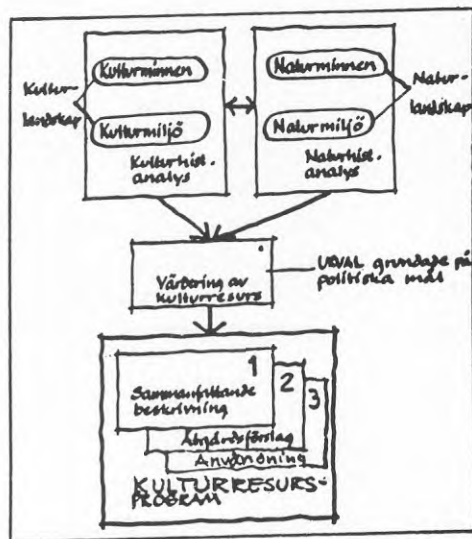 Kultur-
landskap
Kulturminnen
Kulturmiljö
Kulturhist.
analys
Naturminnen
Naturmiljö
Naturhist.
analys
Natur-
landskap
Värdering av
kulturresurs
URVAL grundade på
politiska mål
1
Sammanfattande
beskrivning
2
Åtgärdsförslag
3
Användning
KULTURRESURS-
PROGRAM